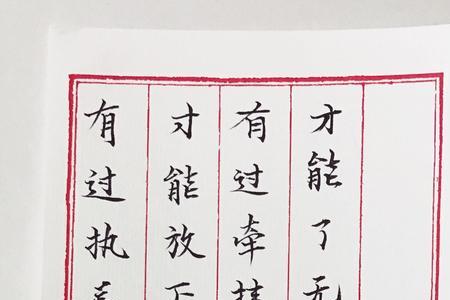 有过执
才能放下
有过牵挂
才能了无